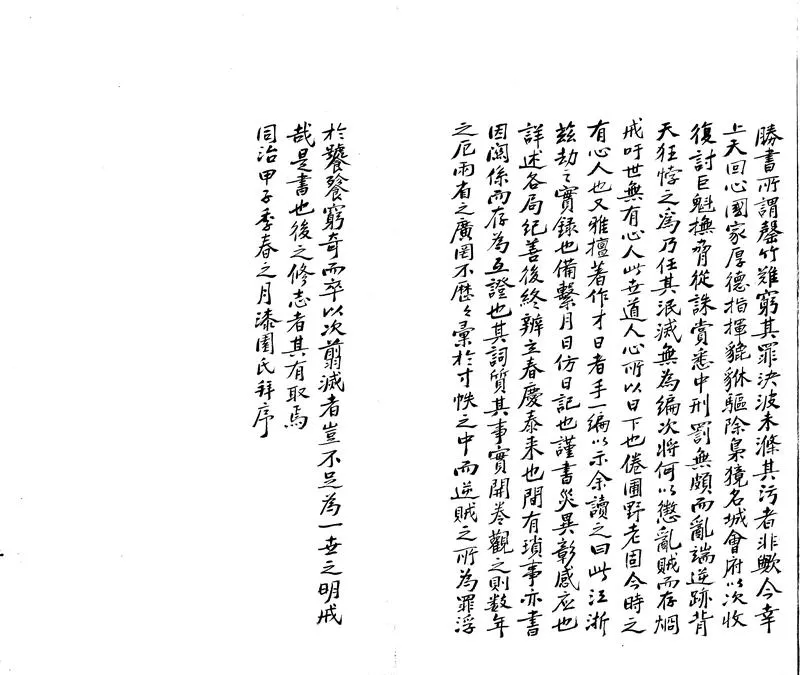 勝書所謂罄竹難窮其罪決波未滌其污者非歟今幸
上天回心國家厚德指揮貔貅驅除梟獍名城會府以次收
復討巨魁撫脅從誅賞悉中刑罰無頗而亂端逆跡背
天狂悖之爲乃任其泯滅無為編次將何以懲亂賊而存烱
戒吁世無有心人此世道人心所以日下也倦圃野老固今時之
有心人也又雅擅著作才日者手一編以示余讀之曰此江浙
茲劫之實録也備繫月日仿日記也謹書災異彰感应也
詳述各局紀善後終辦立春慶泰来也間有瑣事亦書
因闗係而存為互證也其詞質其事實開卷觀之則数年
之厄雨省之廣罔不歷々彙於寸帙之中而逆賊之所為罪浮
於饕餮窮奇而卒以次翦滅者豈不足為一世之明戒
哉是書也後之修志者其有取焉
同治甲子季春之月漆園氏拜序